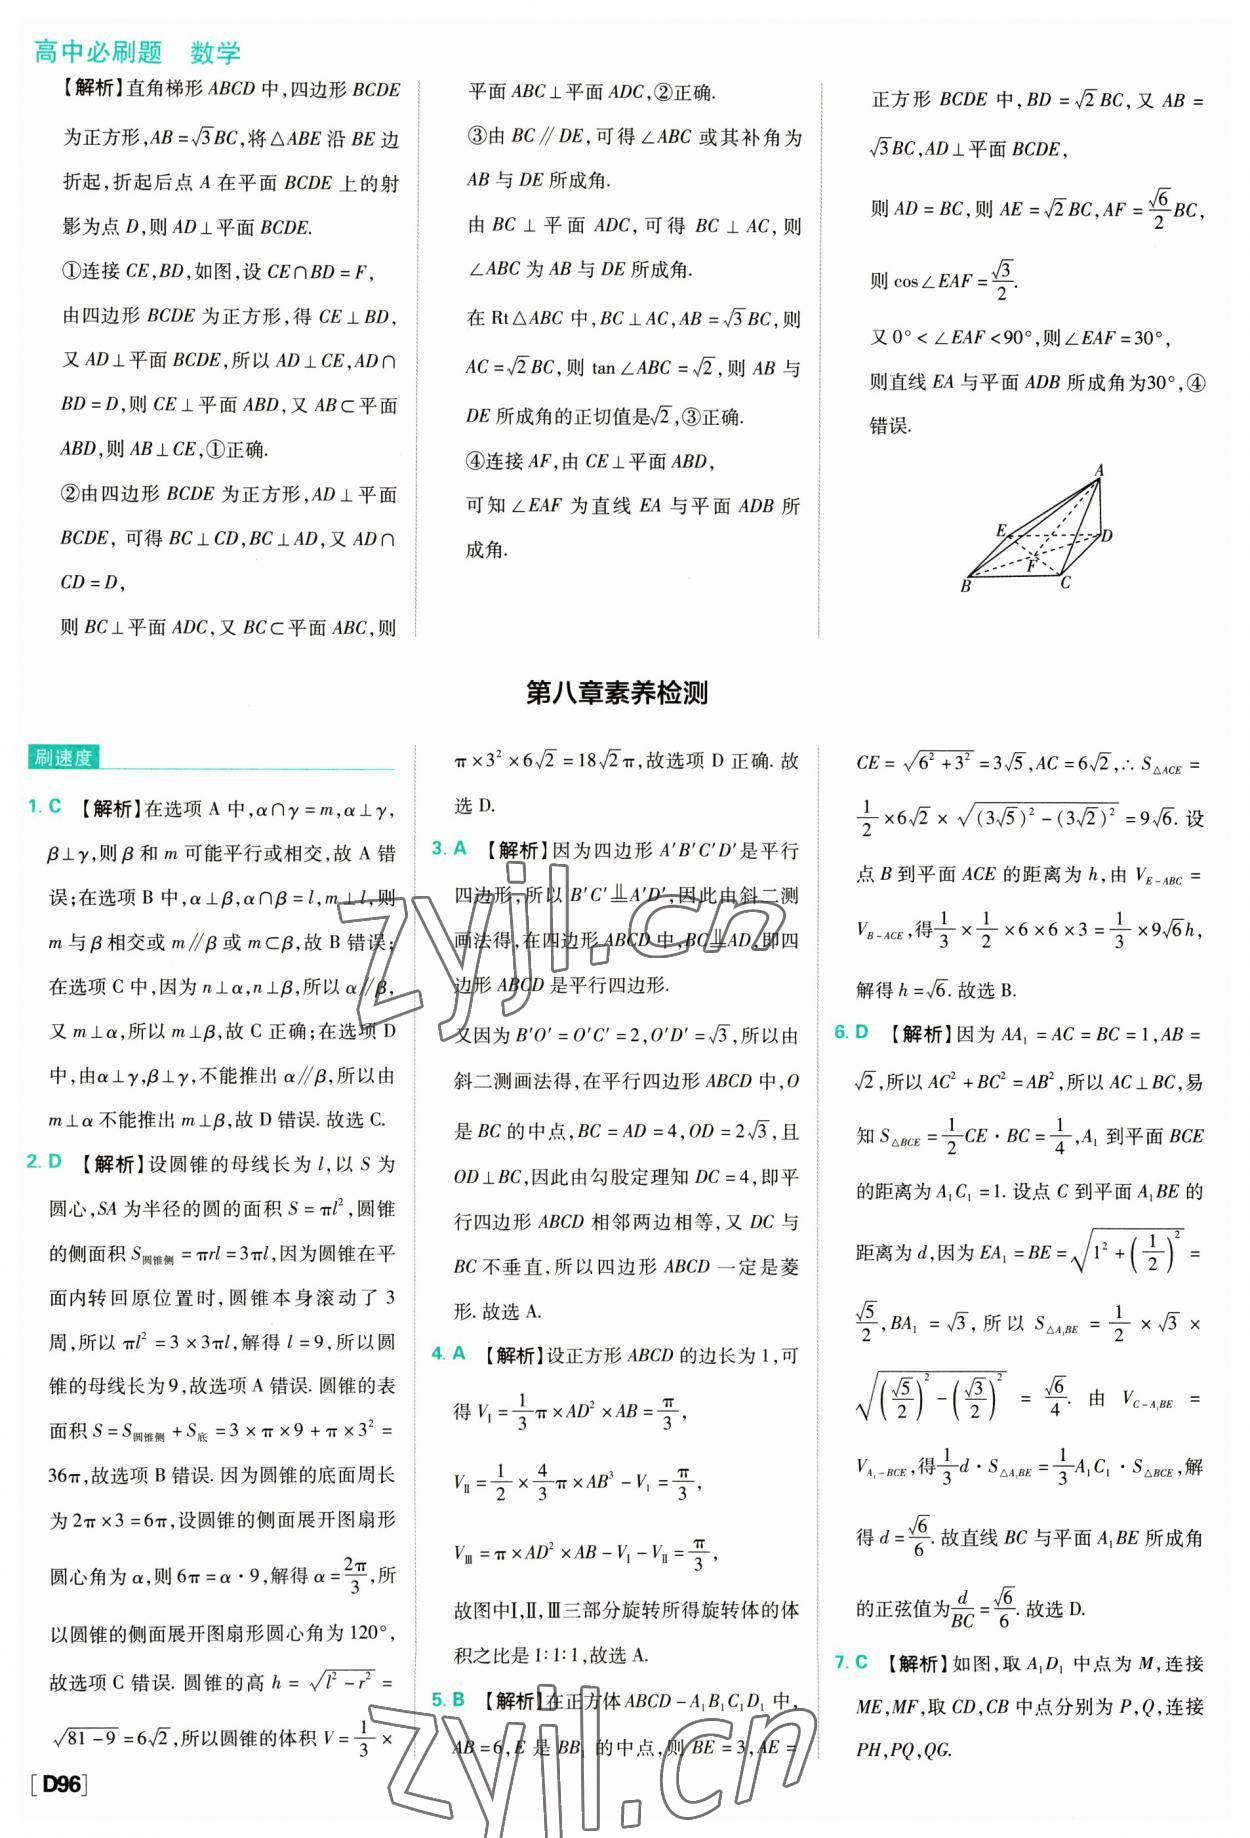 高中必刷题 数学
【解析】直角梯形 ABCD 中,四边形 BCDE
为正方形,AB=√3BC,将△ABE 沿 BE 边
折起,折起后点 A 在平面 BCDE 上的射
影为点 D,则 AD⊥平面 BCDE.
①连接 CE,BD,如图,设 CE∩BD=F,
由四边形 BCDE 为正方形,得 CE⊥BD,
又 AD⊥平面 BCDE,所以 AD⊥CE,AD∩
BD=D,则 CE⊥平面 ABD,又 AB⊂平面
ABD,则 AB⊥CE,①正确.
②由四边形 BCDE 为正方形,AD⊥平面
BCDE, 可得 BC⊥CD,BC⊥AD,又 AD∩
CD=D,
则 BC⊥平面 ADC,又 BC⊂平面 ABC,则
平面 ABC⊥平面 ADC,②正确.
③由 BC∥DE,可得∠ABC 或其补角为
AB 与 DE 所成角.
由 BC⊥平面 ADC,可得 BC⊥AC,则
∠ABC 为 AB 与 DE 所成角.
在 Rt△ABC 中,BC⊥AC,AB=√3BC,则
AC=√2BC,则 tan∠ABC=√2,则 AB 与
DE 所成角的正切值是√2,③正确.
④连接 AF,由 CE⊥平面 ABD,
可知∠EAF 为直线 EA 与平面 ADB 所
成角.
正方形 BCDE 中,BD=√2BC,又 AB=
√3BC,AD⊥平面 BCDE,
则 AD=BC,则 AE=√2BC,AF=√6/2BC,
则 cos∠EAF=√3/2.
又 0°<∠EAF<90°,则∠EAF=30°,
则直线 EA 与平面 ADB 所成角为30°,④
错误.
A
E
D
F
B
C
第八章素养检测
刷速度
1. C 【解析】在选项 A 中,α∩γ=m,α⊥γ,
β⊥γ,则 β 和 m 可能平行或相交,故 A 错
误;在选项 B 中,α⊥β,α∩β=l,m⊥l,则
m 与 β 相交或 m∥β 或 m⊂β,故 B 错误;
在选项 C 中,因为 n⊥α,n⊥β,所以 α∥β,
又 m⊥α,所以 m⊥β,故 C 正确;在选项 D
中,由α⊥γ,β⊥γ,不能推出 α∥β,所以由
m⊥α 不能推出 m⊥β,故 D 错误. 故选 C.
2. D 【解析】设圆锥的母线长为 l,以 S 为
圆心,SA 为半径的圆的面积 S=πl²,圆锥
的侧面积 S圆锥侧=πrl=3πl,因为圆锥在平
面内转回原位置时,圆锥本身滚动了 3
周,所以 πl²=3×3πl,解得 l=9,所以圆
锥的母线长为9,故选项 A 错误. 圆锥的表
面积 S=S圆锥侧+S底=3×π×9+π×3²=
36π,故选项 B 错误. 因为圆锥的底面周长
为 2π×3=6π,设圆锥的侧面展开图扇形
圆心角为 α,则 6π=α·9,解得 α=2π/3,所
以圆锥的侧面展开图扇形圆心角为 120°,
故选项 C 错误. 圆锥的高 h=√(l²-r²)=
√(81-9)=6√2,所以圆锥的体积 V=1/3×
π×3²×6√2=18√2π,故选项 D 正确. 故
选 D.
3. A 【解析】因为四边形 A′B′C′D′是平行
四边形,所以 B′C′⫫A′D′,因此由斜二测
画法得,在四边形 ABCD 中,BC⫫AD,即四
边形 ABCD 是平行四边形.
又因为 B′O′=O′C′=2,O′D′=√3,所以由
斜二测画法得,在平行四边形 ABCD 中,O
是 BC 的中点,BC=AD=4,OD=2√3,且
OD⊥BC,因此由勾股定理知 DC=4,即平
行四边形 ABCD 相邻两边相等,又 DC 与
BC 不垂直,所以四边形 ABCD 一定是菱
形. 故选 A.
4. A 【解析】设正方形 ABCD 的边长为 1,可
得 VⅠ=1/3π×AD²×AB=π/3,
VⅡ=1/2×4/3π×AB³-VⅠ=π/3,
VⅢ=π×AD²×AB-VⅠ-VⅡ=π/3,
故图中Ⅰ,Ⅱ,Ⅲ三部分旋转所得旋转体的体
积之比是 1∶1∶1,故选 A.
5. B 【解析】在正方体 ABCD-A₁B₁C₁D₁ 中,
AB=6,E 是 BB₁ 的中点,则 BE=3,AE=
CE=√(6²+3²)=3√5,AC=6√2,∴S△ACE=
1/2×6√2×√((3√5)²-(3√2)²)=9√6. 设
点 B 到平面 ACE 的距离为 h,由 V E-ABC=
V B-ACE,得1/3×1/2×6×6×3=1/3×9√6h,
解得 h=√6. 故选 B.
6. D 【解析】因为 AA₁=AC=BC=1,AB=
√2,所以 AC²+BC²=AB²,所以 AC⊥BC,易
知 S△BCE=1/2CE·BC=1/4,A₁ 到平面 BCE
的距离为 A₁C₁=1. 设点 C 到平面 A₁BE 的
距离为 d,因为 EA₁=BE=√(1²+(1/2)²)=
√5/2,BA₁=√3,所以 S△A₁BE=1/2×√3×
√((√5/2)²-(√3/2)²)=√6/4. 由 V C-A₁BE=
V A₁-BCE,得1/3d·S△A₁BE=1/3A₁C₁·S△BCE,解
得 d=√6/6. 故直线 BC 与平面 A₁BE 所成角
的正弦值为d/BC=√6/6. 故选 D.
7. C 【解析】如图,取 A₁D₁ 中点为 M,连接
ME,MF,取 CD,CB 中点分别为 P,Q,连接
PH,PQ,QG.
[D96]
zyjl.cn
zyjl.cn